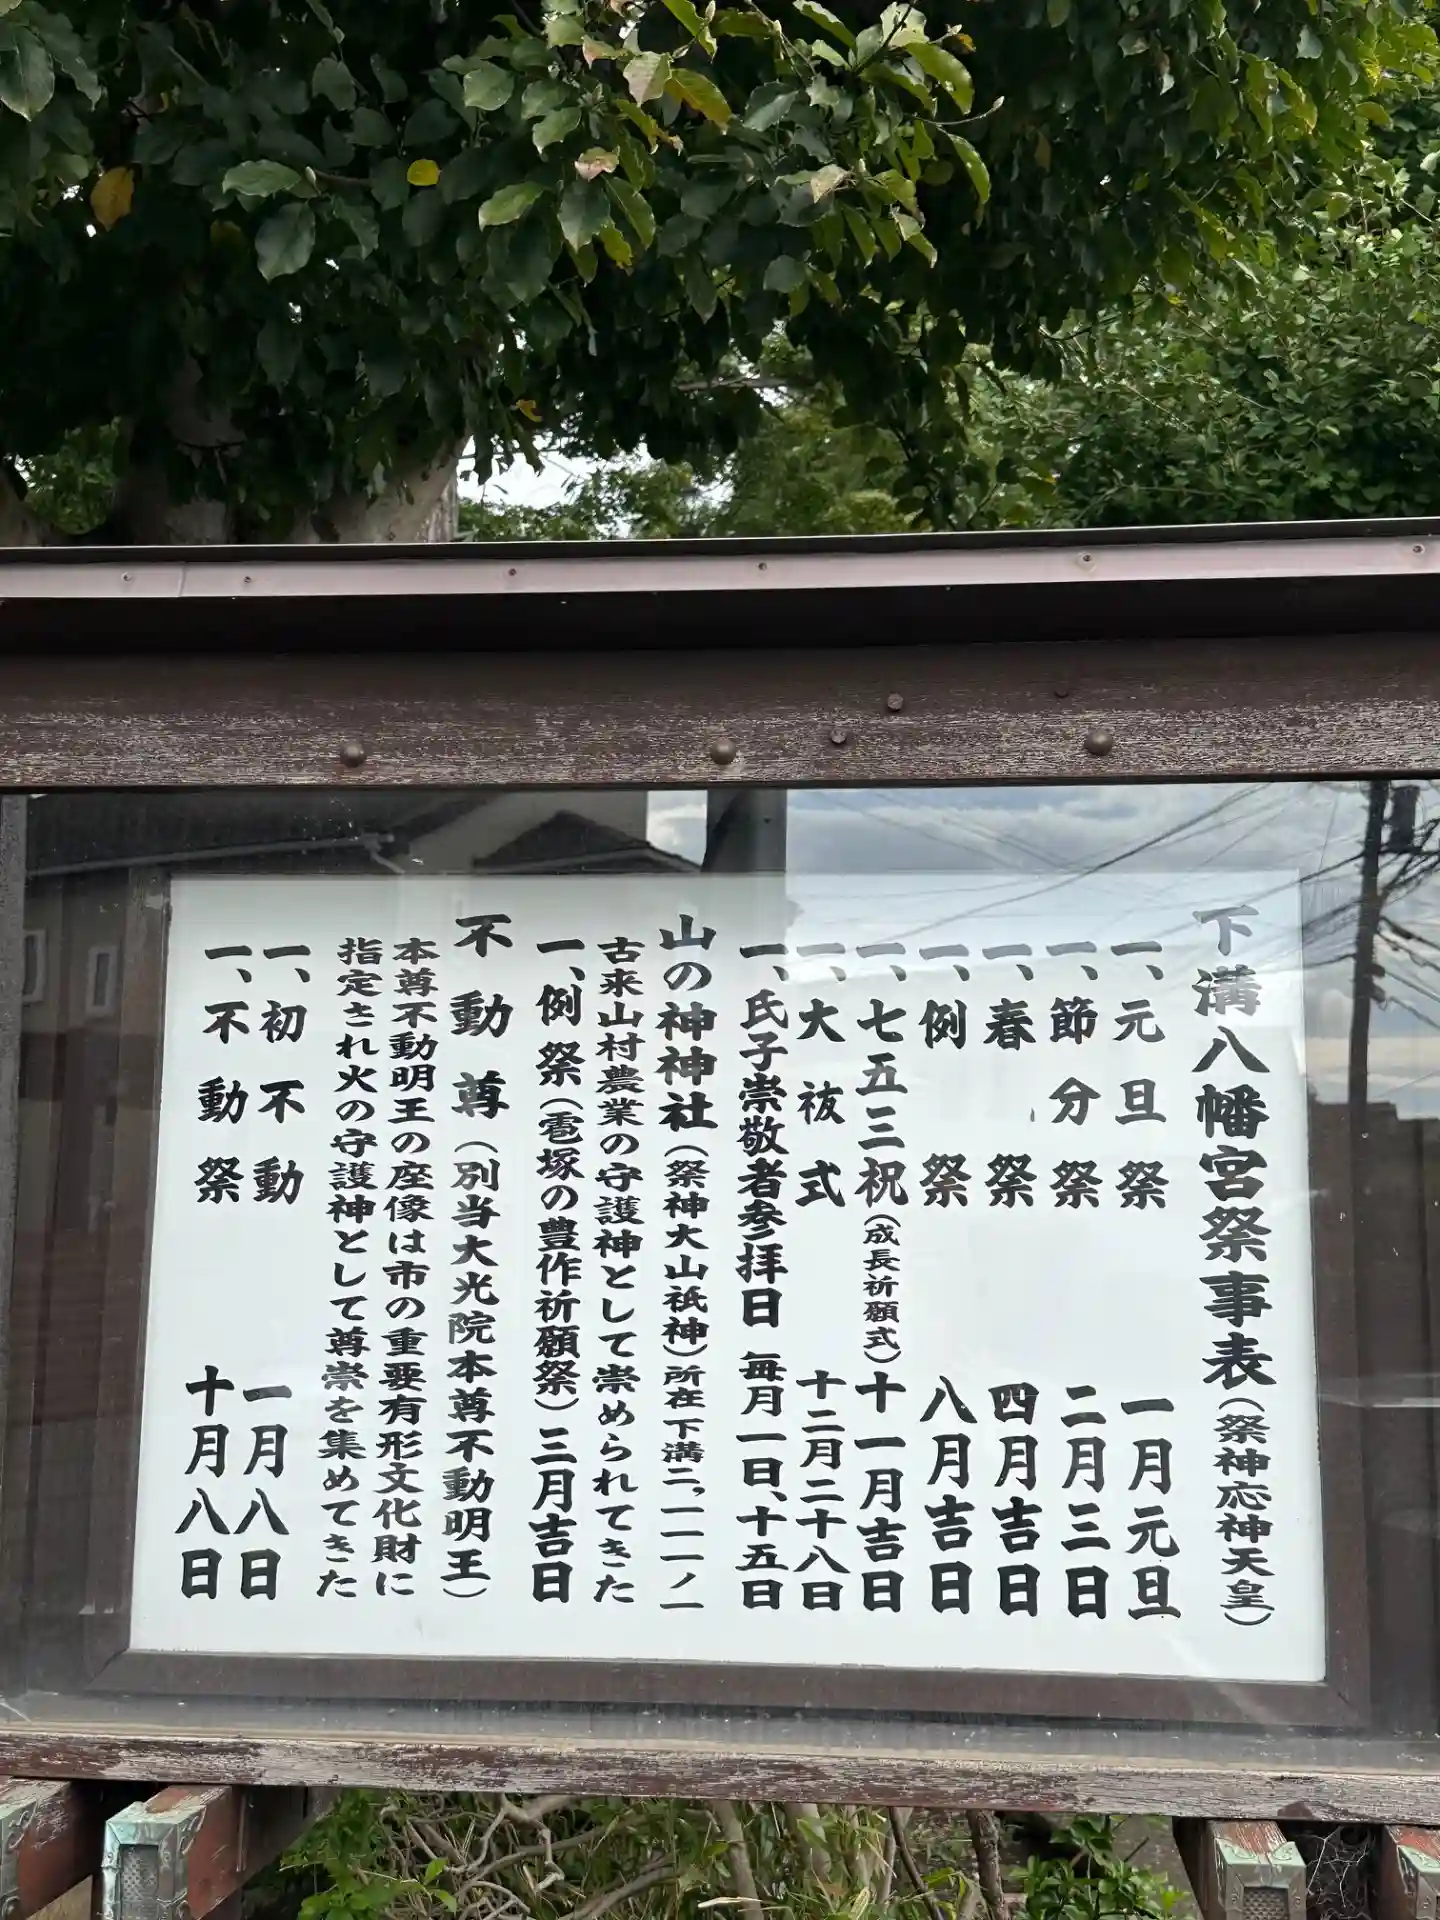 下溝八幡宮祭事表（祭神応神天皇）
一、元旦祭 一月元旦
一、節分祭 二月三日
一、春祭 四月吉日
一、例祭 八月吉日
一、七五三祝（成長祈願式）十一月吉日
一、大祓式 十二月二十八日
一、氏子崇敬者参拝日 毎月一日、十五日
山の神神社（祭神大山祇神）所在下溝二、一一一ノ二
古来山村農業の守護神として崇められてきた
一、例祭（雹塚の豊作祈願祭）三月吉日
不動尊（別当大光院本尊不動明王）
本尊不動明王の座像は市の重要有形文化財に
指定され火の守護神として尊崇を集めてきた
一、初不動 一月八日
一、不動祭 十月八日